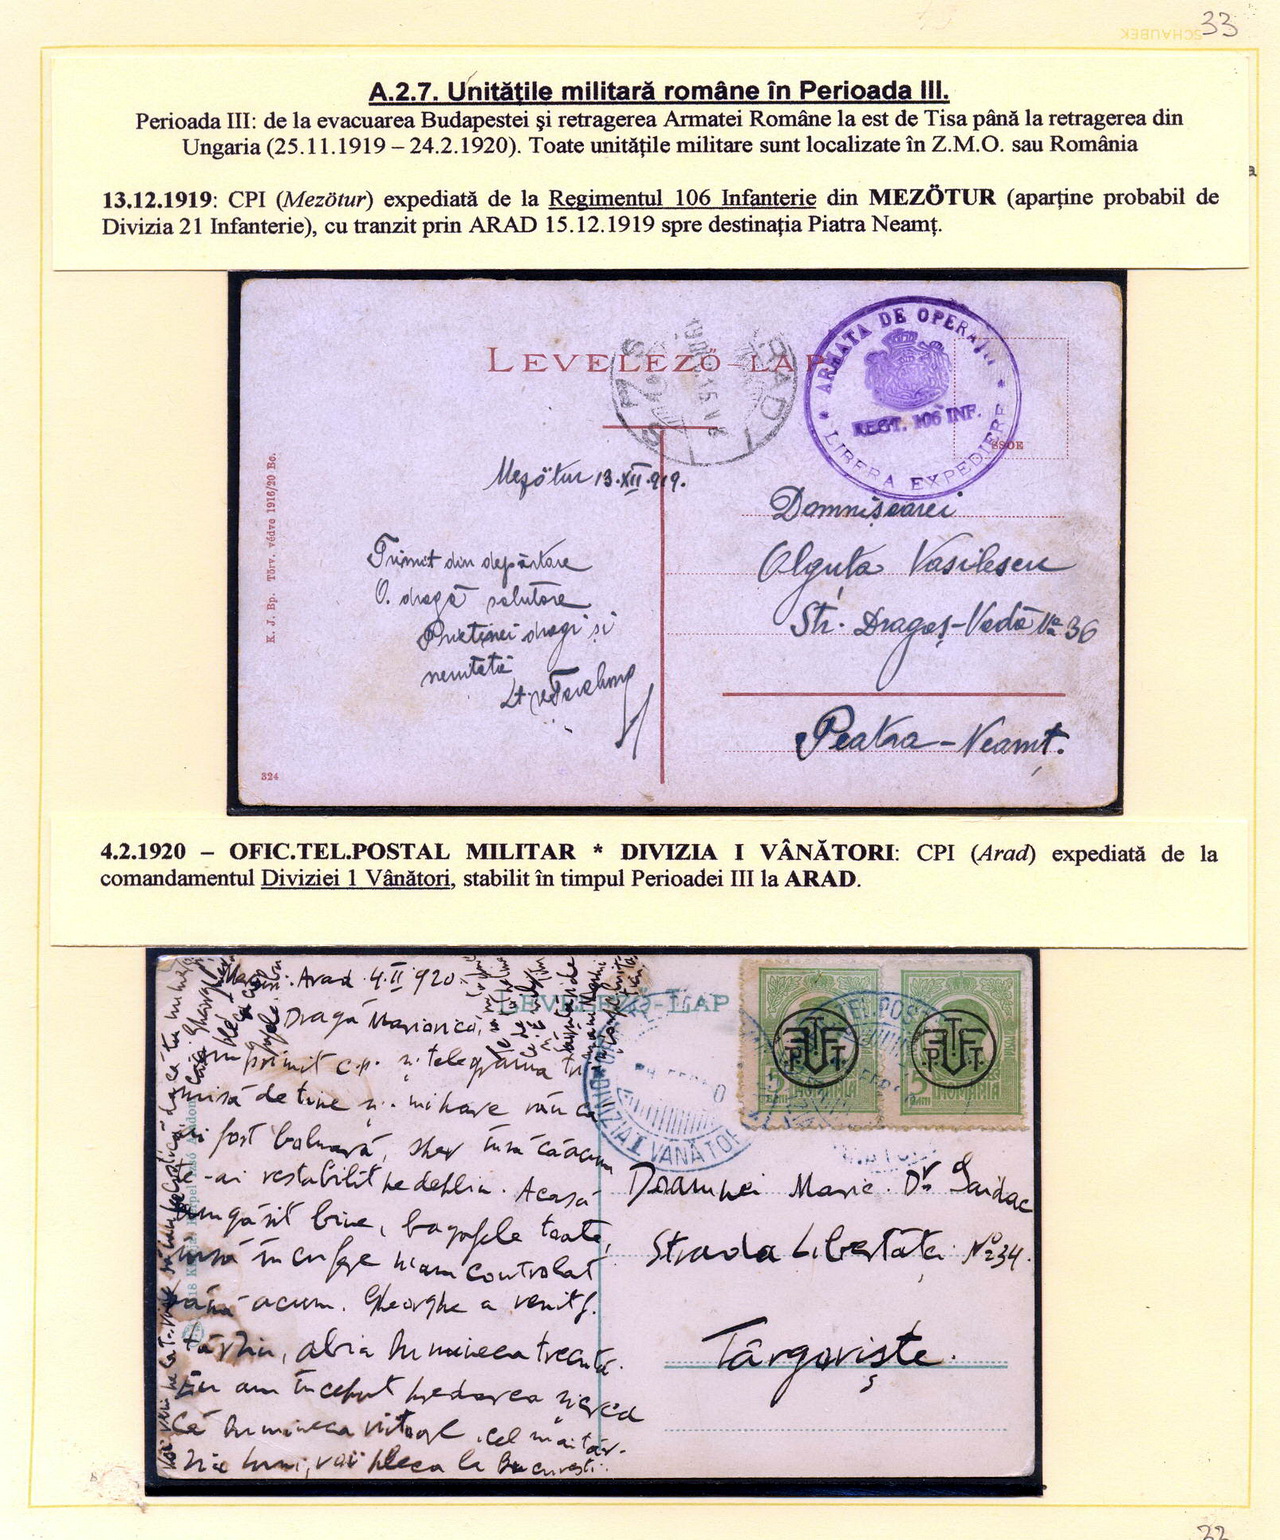 33
SCHAUBEK
A.2.7. Unitățile militară române în Perioada III.
Perioada III: de la evacuarea Budapestei și retragerea Armatei Române la est de Tisa până la retragerea din
Ungaria (25.11.1919 – 24.2.1920). Toate unitățile militare sunt localizate în Z.M.O. sau România
13.12.1919: CPI (Mezötur) expediată de la Regimentul 106 Infanterie din MEZÖTUR (aparține probabil de
Divizia 21 Infanterie), cu tranzit prin ARAD 15.12.1919 spre destinația Piatra Neamț.
LEVELEZŐ-LAP
ARMATA DE OPERAȚII
REGT. 106 INF.
LIBERA EXPEDIERE
Mezötur 13.XII.919.
Trimit din depărtare
O dragă salutare
Prietenei dragi și
neuitată
Lt.
Domnișoarei
Olguța Vasilescu
Str. Dragoș-Vodă No 36
Peatra-Neamț.
K. J. Bp. Törv. védve 1916/20 Eo.
324
4.2.1920 – OFIC.TEL.POSTAL MILITAR * DIVIZIA I VÂNĂTORI: CPI (Arad) expediată de la
comandamentul Diviziei 1 Vânători, stabilit în timpul Perioadei III la ARAD.
LEVELEZŐ-LAP
Arad 4.II 920
Dragă Marioricо,
Am primit c.p. și telegrama
de tine și
ai fost bolnavă,
te-ai restabilit pe deplin. Acasă
am găsit bine, bagajele toate,
însă în cufere n'am controlat
până acum. Gheorghe a venit f.
târziu, abia Dumineca trecută.
Eu am început predarea și cred
că Dumineca viitoare, cel mai târ-
ziu luni, voi pleca la București.
DIVIZIA I VANATORI
TEL. POST
ROMANIA
ROMANIA
P.T.T.
P.T.T.
Doamnei Maria Dr.
Strada Libertăței No 34.
Târgoviște.